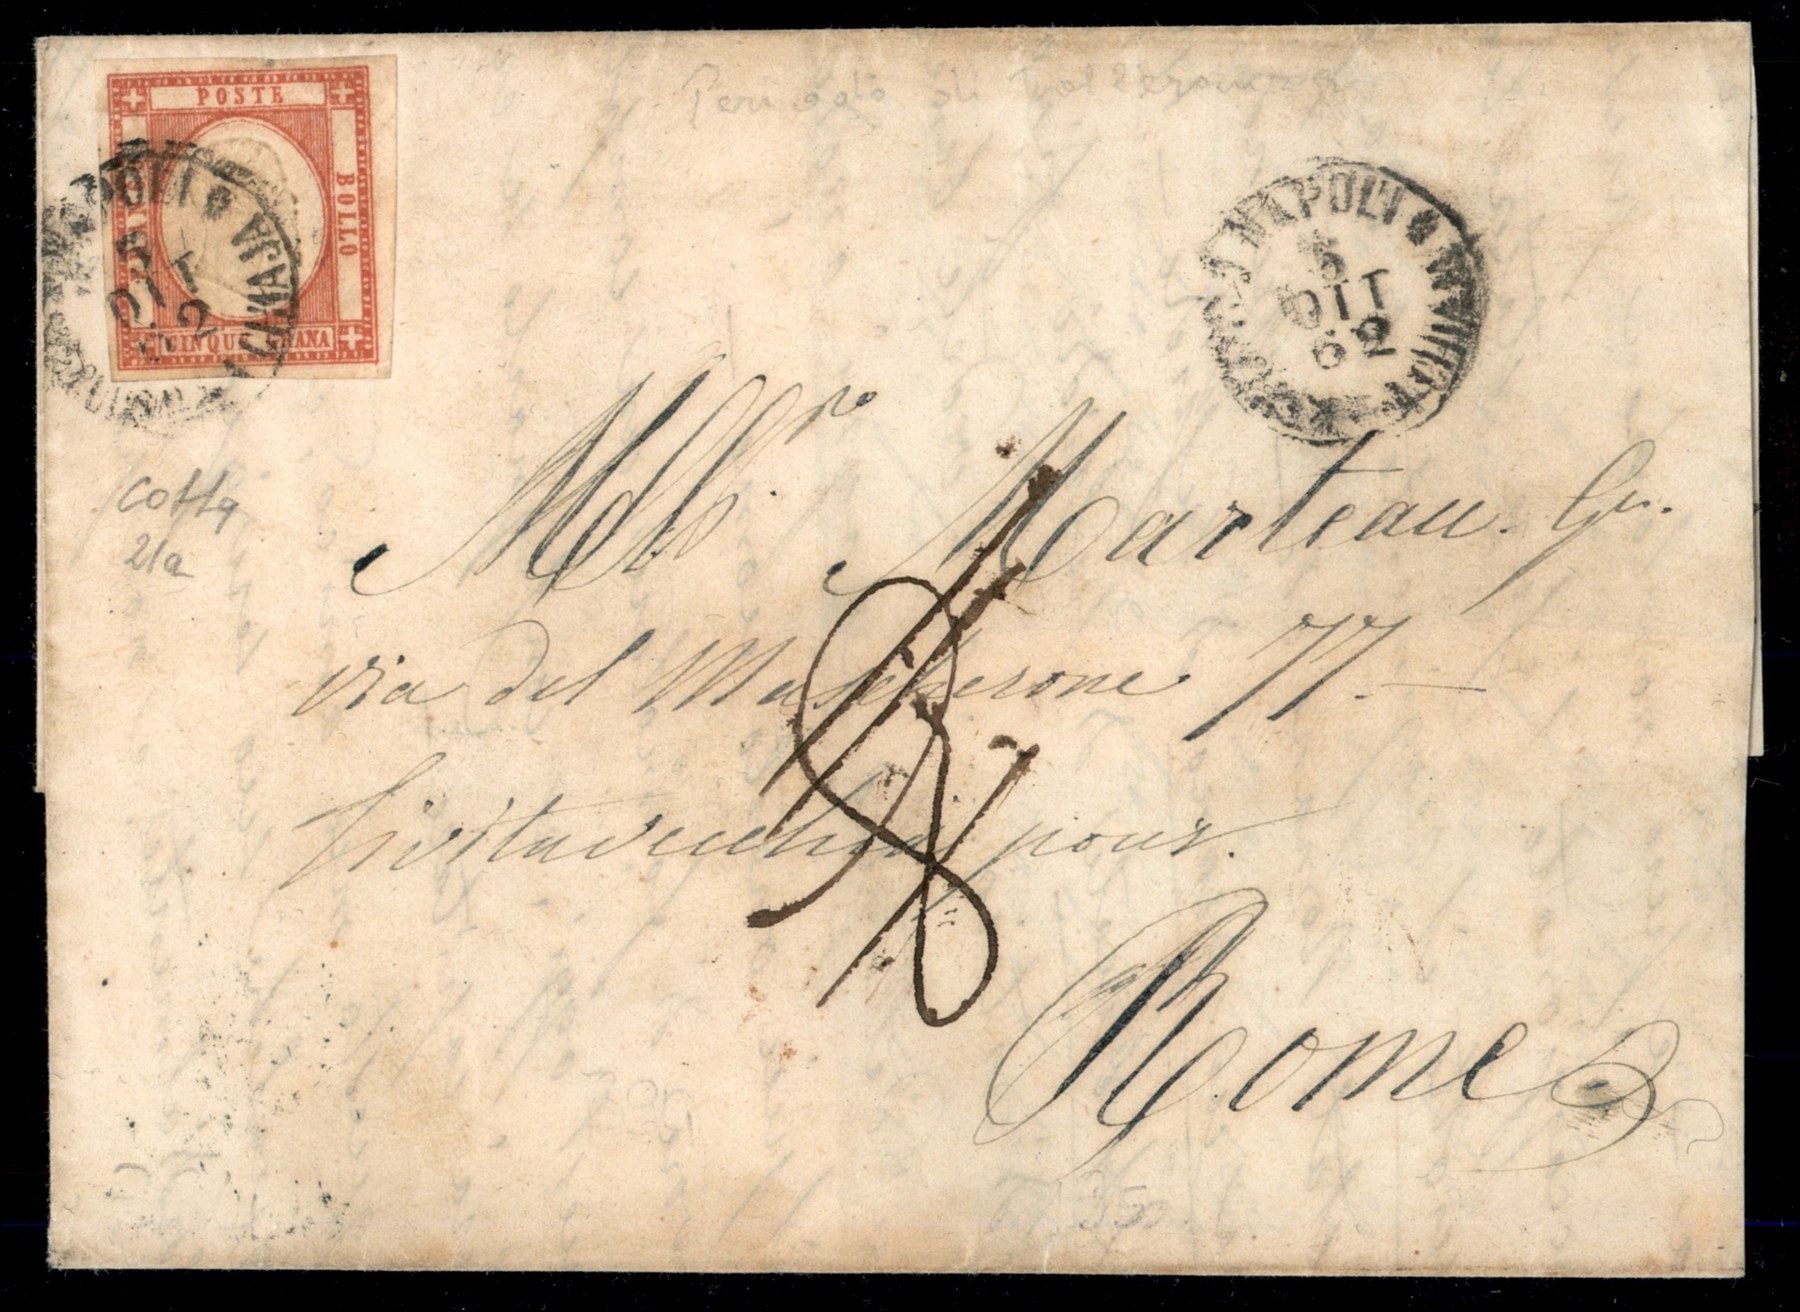 Periodo di tolleranza
POSTE
BOLLO
CINQUE GRANA
NAPOLI
5
OTT
62
NAPOLI
5
OTT
62
Cotta
21a
Marteau. Gr.
via del Mascherone 77. —
Civitavecchia pour.
Rome
8